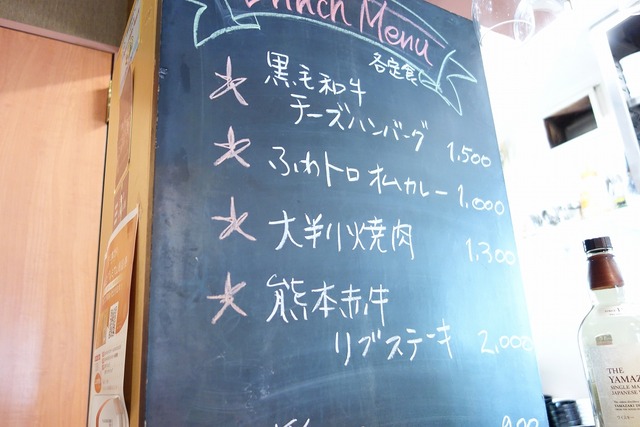 Lunch Menu
各定食に
黒毛和牛
チーズハンバーグ 1,500
ふわトロ オムカレー 1,000
大判小焼肉 1,300
熊本赤牛
リブステーキ 2,000
THE
YAMAZ
SINGLE MA
JAPANESE